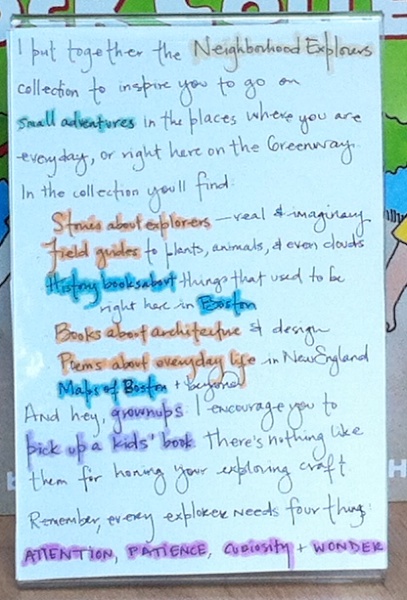 I put together the Neighborhood Explorers
collection to inspire you to go on
small adventures in the places where you are
everyday, or right here on the Greenway.
In the collection you'll find:
Stories about explorers — real & imaginary
Field guides to plants, animals, & even clouds
History books about things that used to be
right here in Boston
Books about architecture & design
Poems about everyday life in New England
Maps of Boston + beyond
And hey, grownups: I encourage you to
pick up a kids' book. There's nothing like
them for honing your exploring craft
Remember, every explorer needs four things:
ATTENTION, PATIENCE, CURIOSITY + WONDER